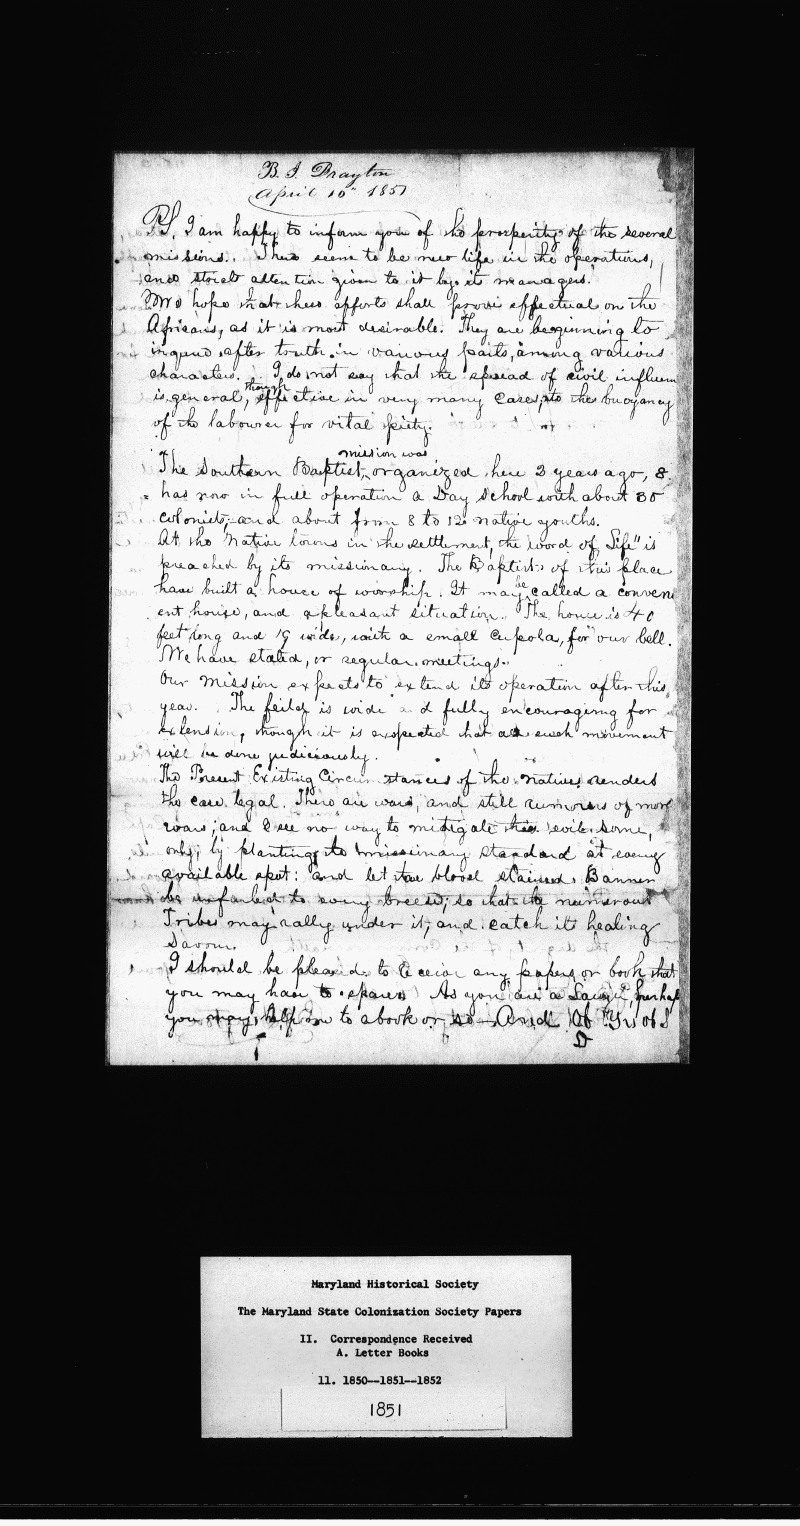 B. J. Drayton
April 10" 1851
PS. I am happy to inform you of the prosperity of the several
missions. There seem to be new life in the operations,
and strict attention given to it by its managers.
We hope that these efforts shall prove effectual on the
Africans, as it is most desirable. They are beginning to
inquire after truth in various parts, among various
characters. I do not say that the spread of civil influen
is general, though effective in very many cases, to the buoyancy
of the labourer for vital piety.
mission was
The Southern Baptist, organized here 2 years ago, &
has now in full operation a Day School with about 30
colonists, and about from 8 to 12 native youths.
At the Native towns in the settlement, the word of Life" is
preached by its missionary. The Baptists of this place
have built a house of worship. It may be called a conveni
ent house, and a pleasant situation. The house is 40
feet long and 19 wide, with a small cupola, for our bell.
We have stated, or regular meetings.
Our Mission expects to extend its operation after this
year. The feild is wide a d fully encouraging for
extension, though it is expected that all such movement
will be done judiciously.
The Present Existing Circumstances of the natives renders
the case legal. There are wars, and still rumours of more
wars; and I see no way to mitigate this evil some,
only, by planting the missionary standard at every
available spot: and let the blood stained Banner
be unfurled to every breese; so that the numerous
Tribes may rally under it, and catch its healing
Savour.
I should be pleased to receive any papers or book that
you may have to spare. As you are a perhap
you may help me to a book or so And
Maryland Historical Society
The Maryland State Colonization Society Papers
II. Correspondence Received
A. Letter Books
11. 1850--1851--1852
1851